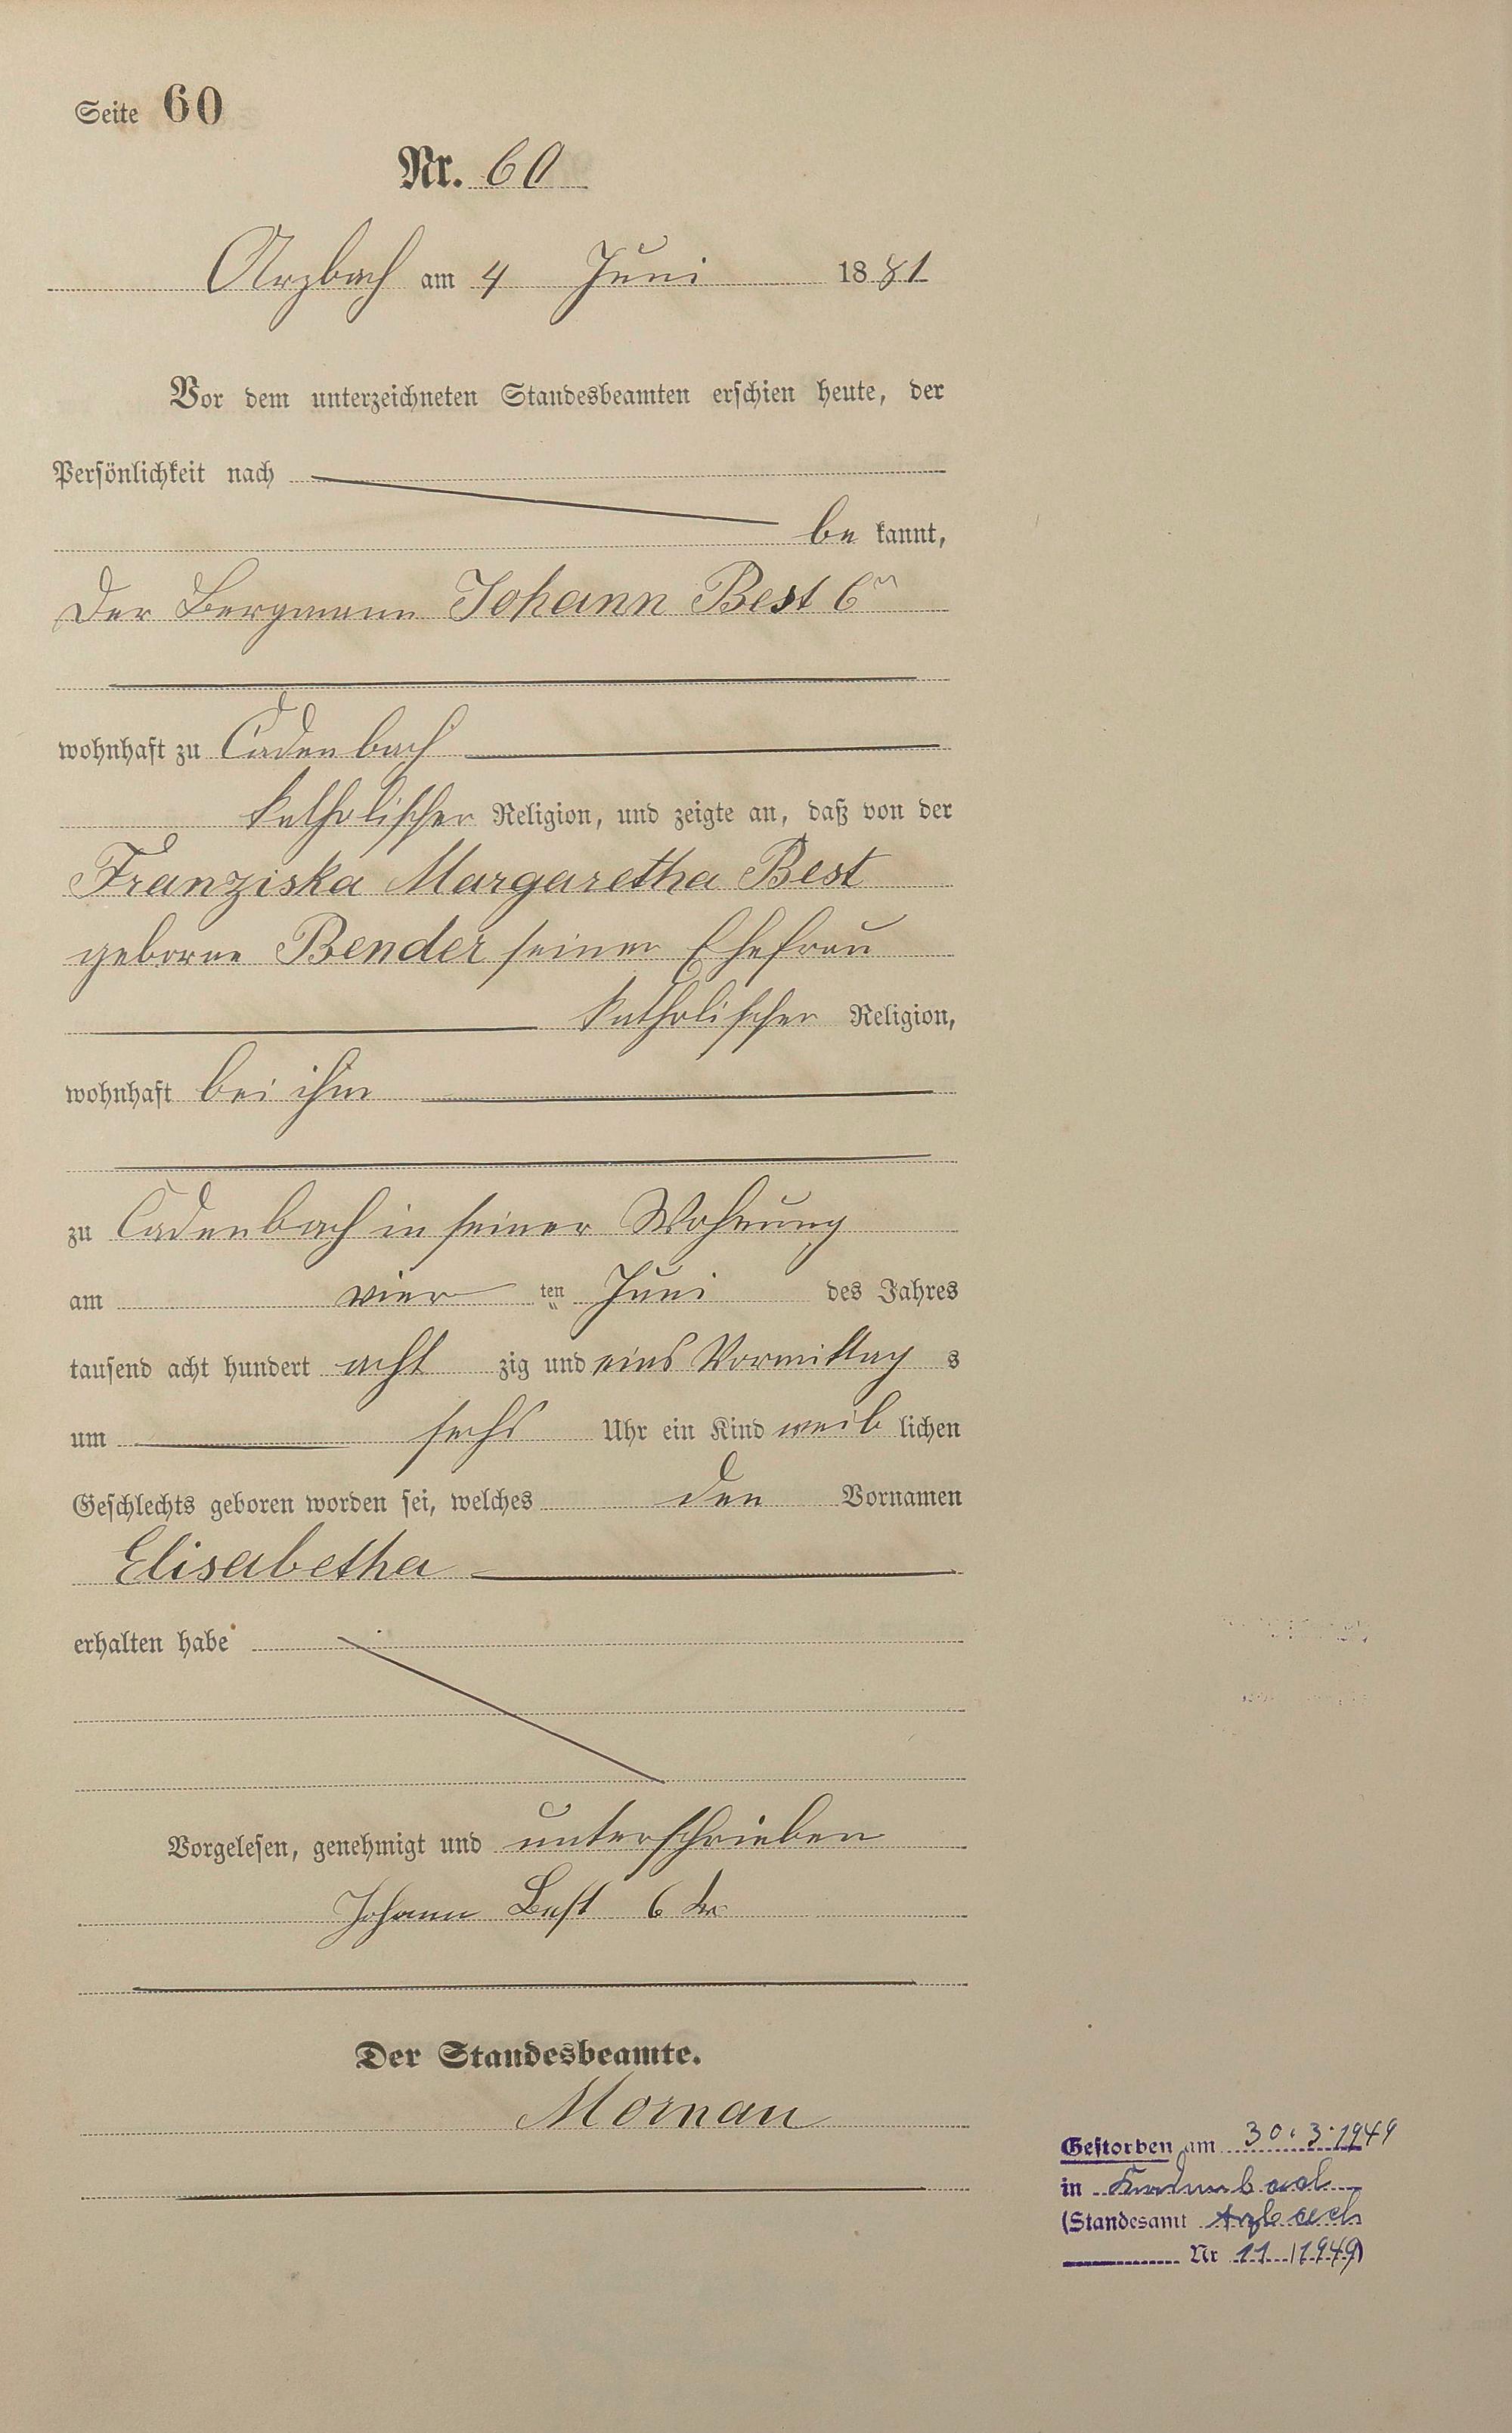 Seite 60
Nr. 60
Arzbach am 4 Juni 1881
Vor dem unterzeichneten Standesbeamten erschien heute, der
Persönlichkeit nach
be kannt,
der Bergmann Johann Best 6r
wohnhaft zu Cadenbach
katholischer Religion, und zeigte an, daß von der
Franziska Margaretha Best
geborne Bender seiner Ehefrau
katholischer Religion,
wohnhaft bei ihm
zu Cadenbach in seiner Wohnung
am vier ten Juni des Jahres
tausend acht hundert acht zig und eins Vormittag s
um sechs Uhr ein Kind weib lichen
Geschlechts geboren worden sei, welches den Vornamen
Elisabetha
erhalten habe
Vorgelesen, genehmigt und unterschrieben
Johann Best 6 ter
Der Standesbeamte.
Mornau
Gestorben am 30.3.1949
in Kadenbach
(Standesamt Arzbach
Nr 11 / 1949)